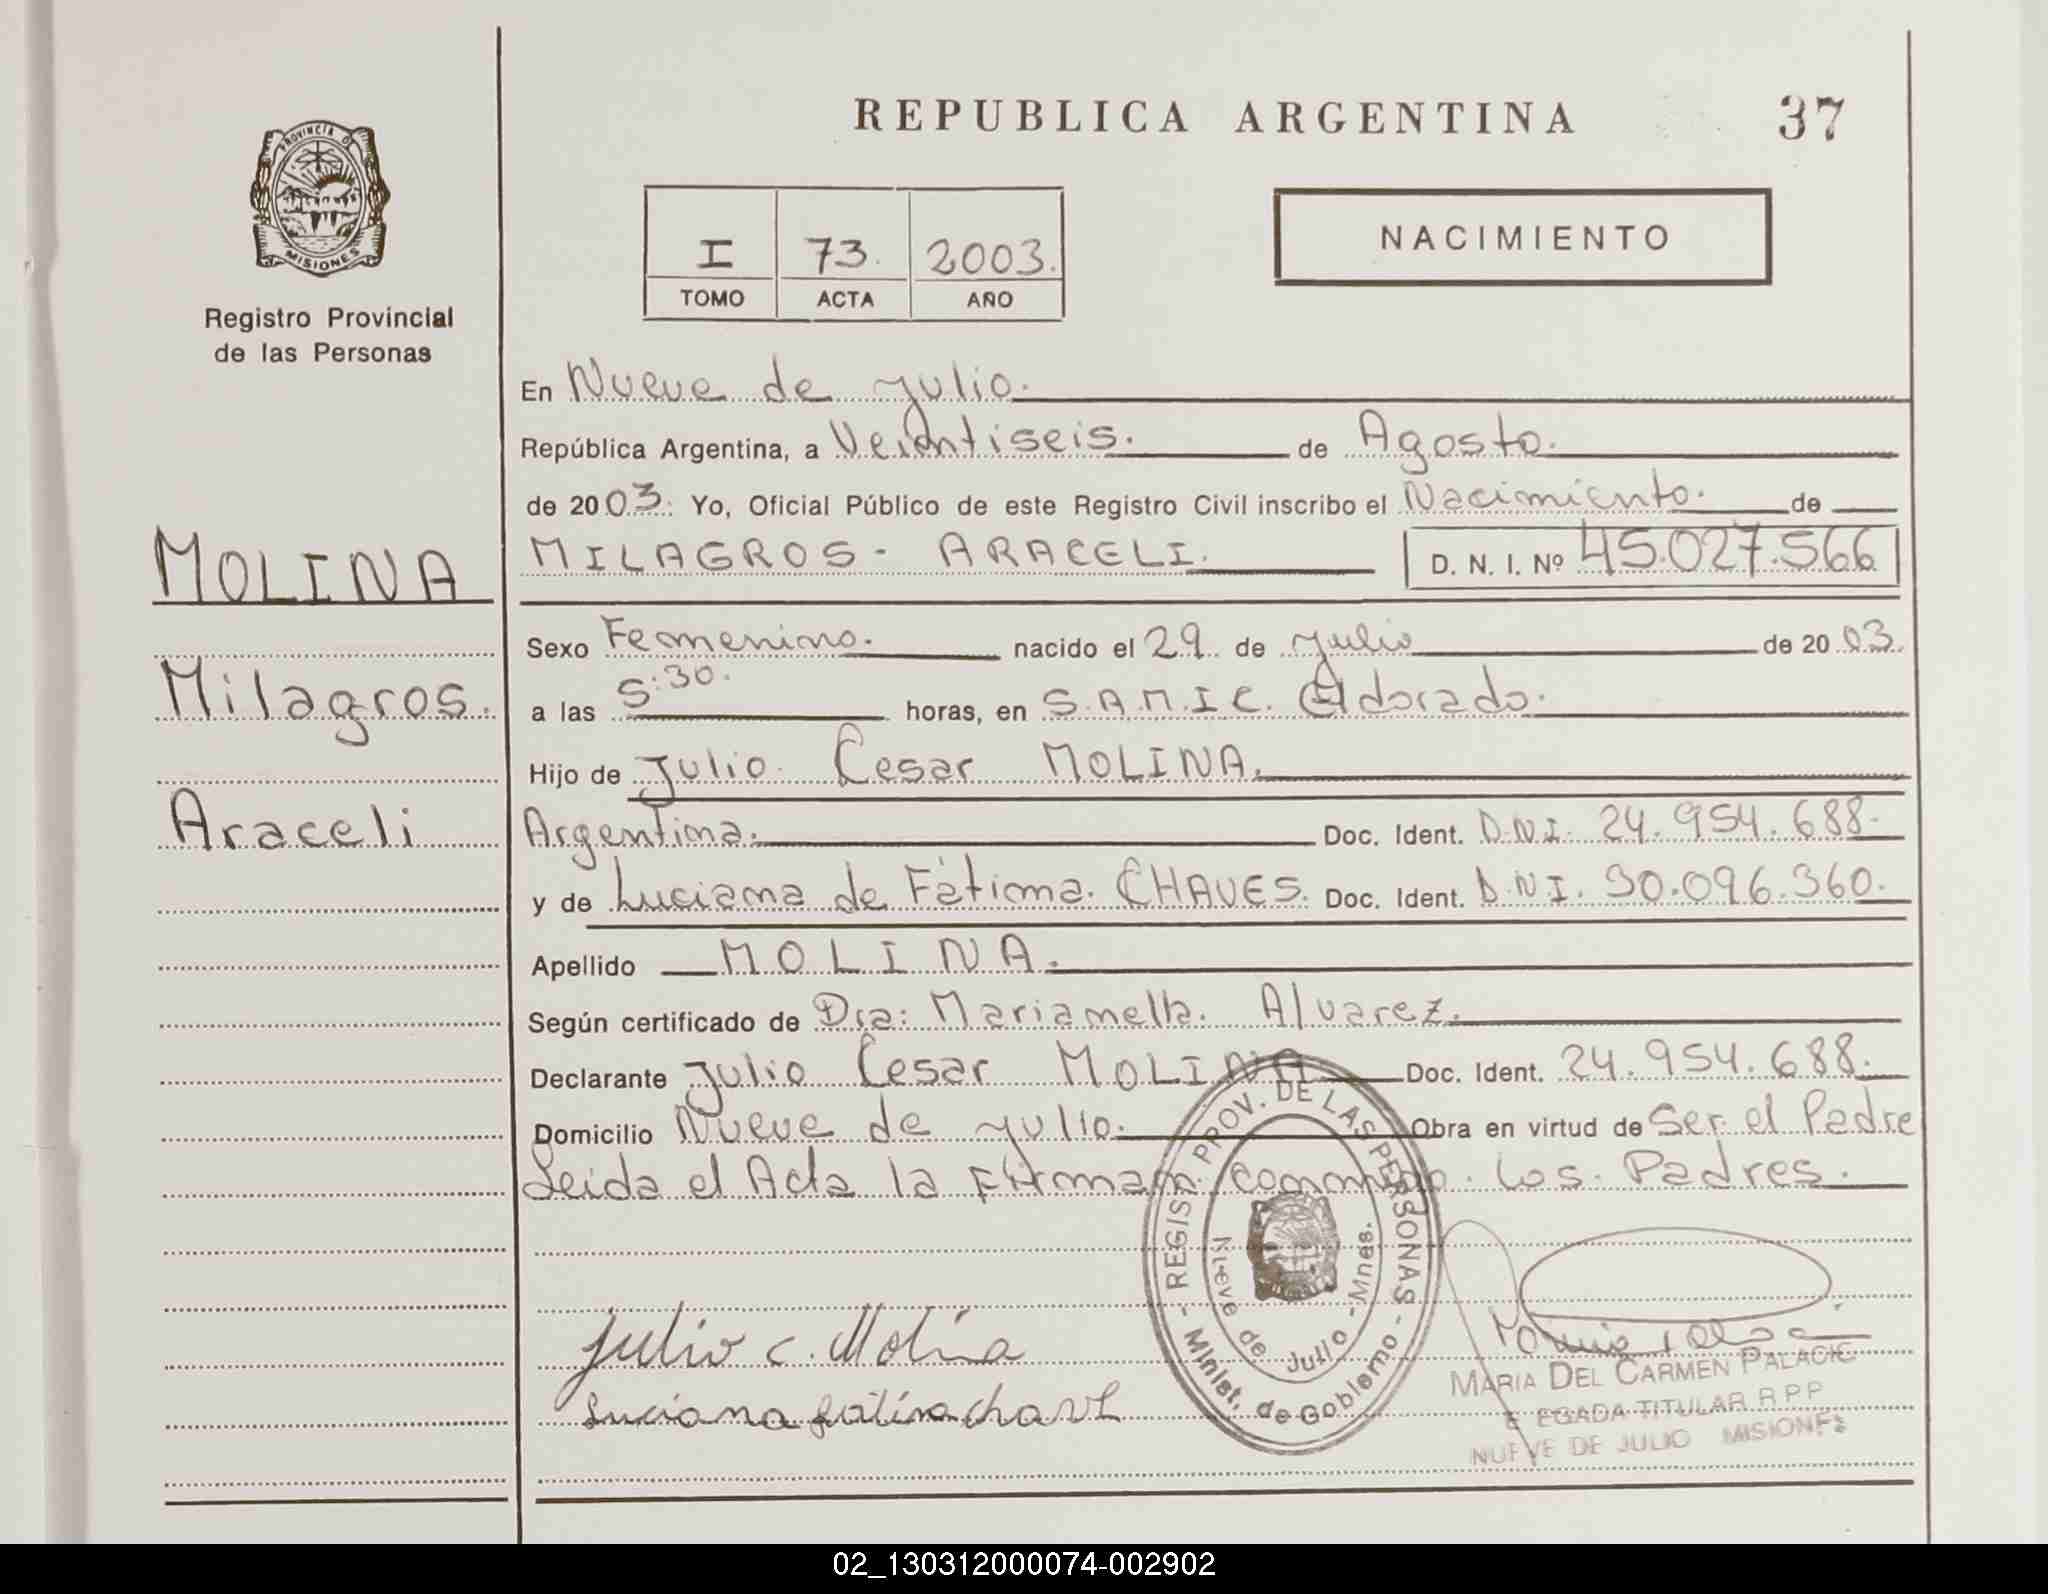 PROVINCIA DE
MISIONES
Registro Provincial
de las Personas
MOLINA
Milagros.
Araceli
REPUBLICA ARGENTINA 37
I 73. 2003.
TOMO ACTA AÑO
NACIMIENTO
En Nueve de julio.
República Argentina, a Veintiseis. de Agosto.
de 2003. Yo, Oficial Público de este Registro Civil inscribo el Nacimiento. de
MILAGROS - ARACELI. D. N. I. Nº 45.027.566
Sexo Femenino. nacido el 29 de julio de 2003.
a las 5:30. horas, en S.A.M.I.C. Eldorado.
Hijo de Julio Cesar MOLINA.
Argentina. Doc. Ident. D.N.I. 24.954.688.
y de Luciana de Fátima. CHAVES. Doc. Ident. D.N.I. 30.096.360.
Apellido MOLINA.
Según certificado de Dra: Marianella. Alvarez.
Declarante Julio Cesar MOLINA Doc. Ident. 24.954.688.
Domicilio Nueve de julio. Obra en virtud de Ser el Padre
Leida el Acta la Firman conmigo. Los. Padres.
- REGIST. PROV. DE LAS PERSONAS -
Minist. de Gobierno
Nueve de Julio - Mnes.
Julio C. Molina
Luciana fatima chavez
MARIA DEL CARMEN PALACIO
E EGADA TITULAR R.P.P
NUEVE DE JULIO MISIONES
02_130312000074-002902